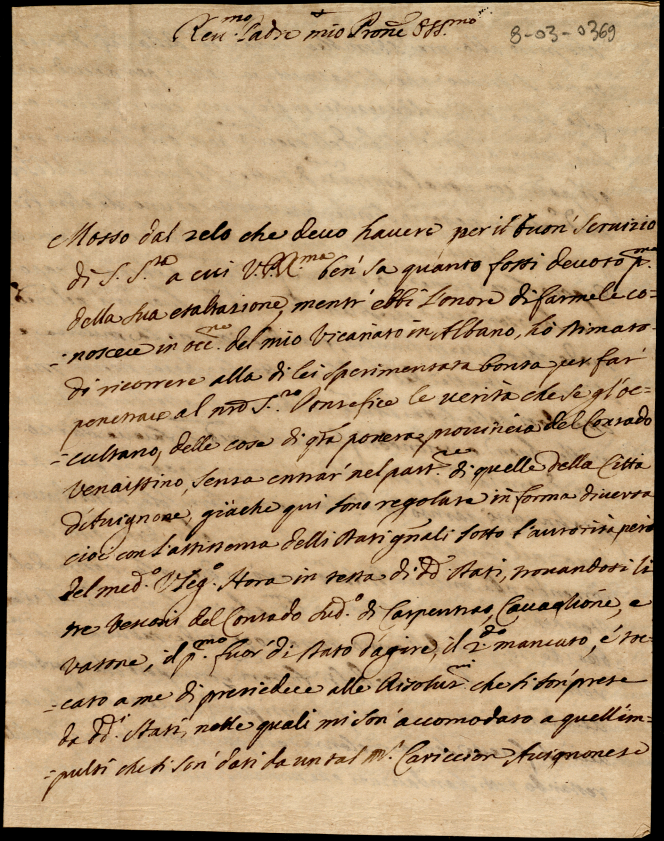 Rev.mo Padre mio Prone Oss.mo
8-03-0369
Mosso dal zelo che devo havere per il buon' servizio
di S. S.tà a cui V. P. R.ma ben' sa quanto fossi devoto p.ma
della sua esaltazione, mentr' ebbi l'onore di farmele co=
=noscere in occ.ne del mio Vicariato in Albano, hò stimato
di ricorrere alla di lei sperimentata bontà per far'
penetrare al nro S.to Pontefice le verità che se gl'oc=
=cultano, delle cose di qta povera provincia del Contado
Venaissino, senza entrar' nel part.re di quelle della Città
d'Avignone, giache qui sono regolate in forma diversa
cioè con l'assistenza delli Stati gnali sotto l'autorità però
del med.o V. Leg.o Hora in testa di dd. Stati, trovandosi li
tre Vescovi del Contado sud.o di Carpentras, Cavaglione, e
Vasone, il p.mo fuor' di stato d'agire, il 2.do mancato, è toc=
=cato a me di presiedere alle Risoluz.ni che si son' prese
da dd.i Stati, nelle quali mi son' accomodato a quell'im=
=pulsi che si son' dati da un tal Avignonese